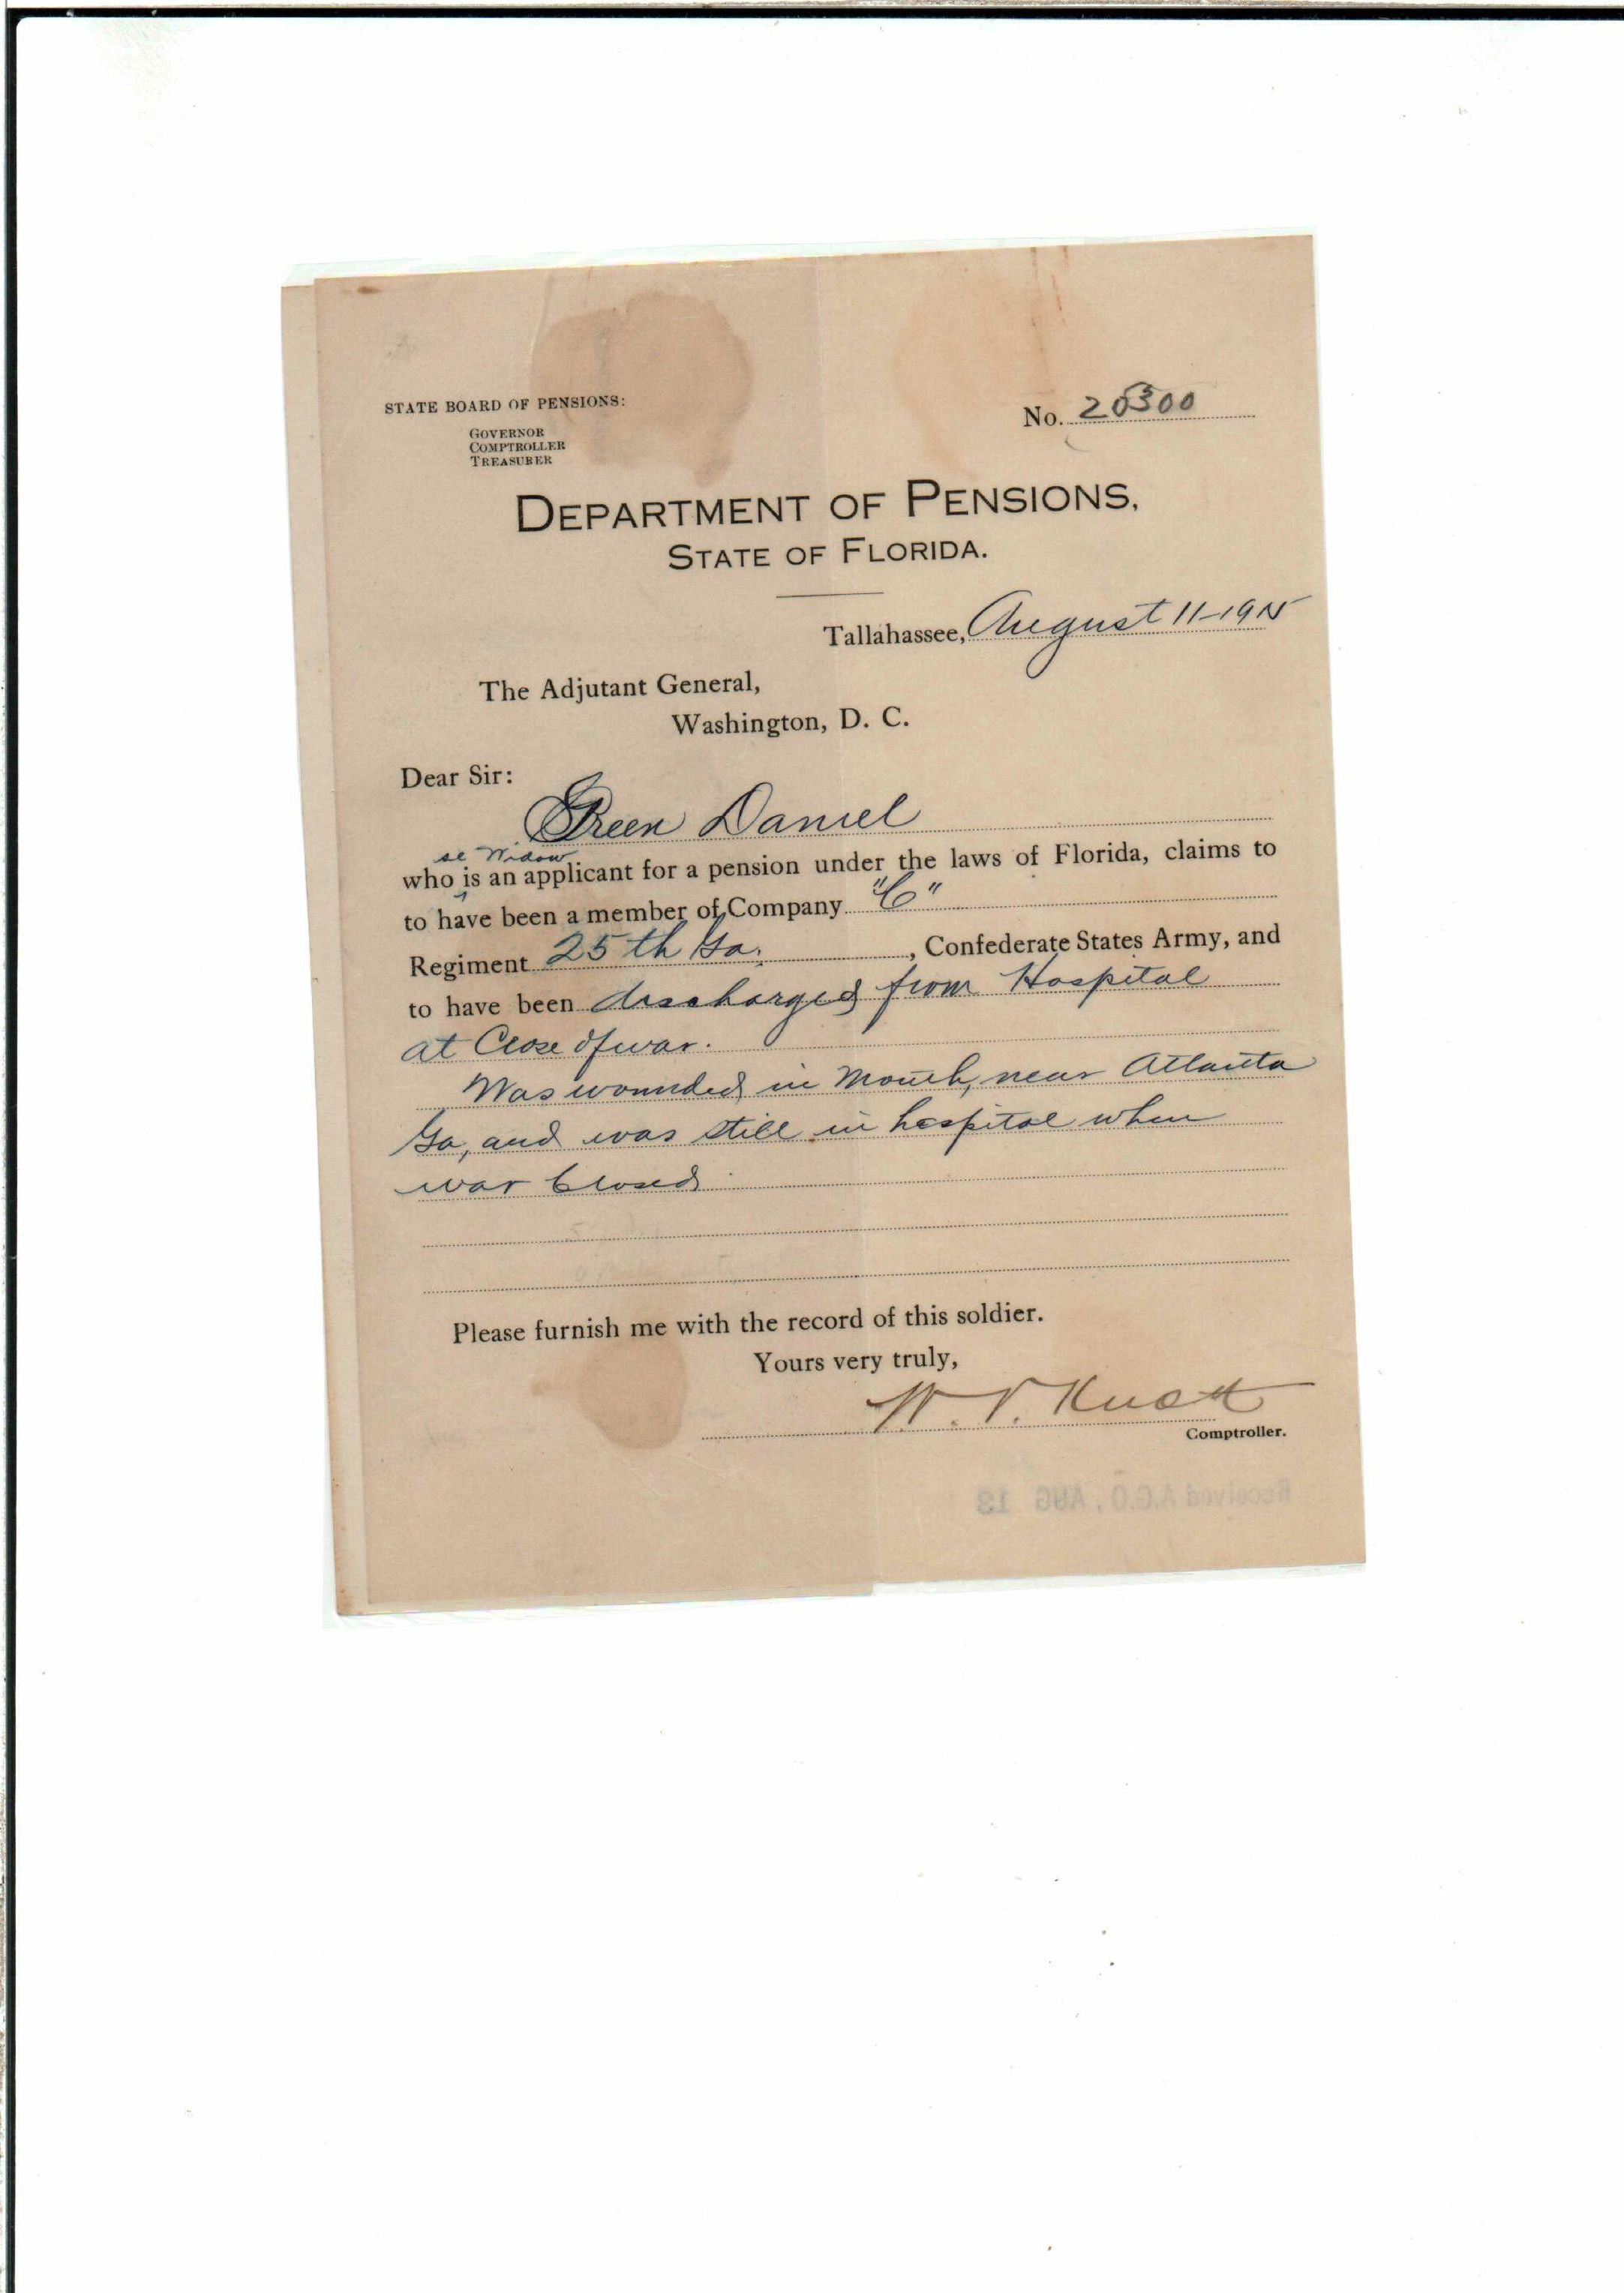 STATE BOARD OF PENSIONS:
GOVERNOR
COMPTROLLER
TREASURER
No. 20300
DEPARTMENT OF PENSIONS,
STATE OF FLORIDA.
Tallahassee, August 11-1915
The Adjutant General,
Washington, D. C.
Dear Sir:
Green Daniel
se Widow
who is an applicant for a pension under the laws of Florida, claims to
to have been a member of Company "C"
Regiment 25th Ga. , Confederate States Army, and
to have been discharged from Hospital
at Close of war.
Was wounded in Mouth, near Atlanta
Ga, and was still in hospital when
war Closed
Please furnish me with the record of this soldier.
Yours very truly,
W. V. Knott
Comptroller.
Received A.G.O. AUG 13